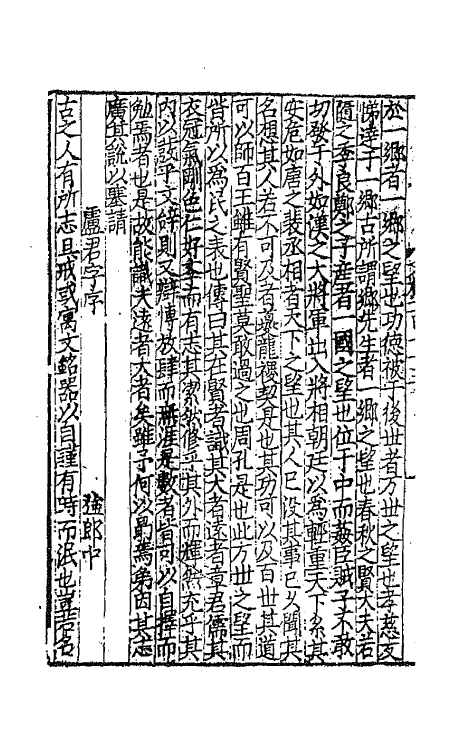 於一鄉者一鄉之望也功德被于後世者万世之望也孝慈友
悌達于一鄉古所謂鄉先生者一鄉之望也春秋之賢大夫若
隨之季良鄭之子產者一國之望也位于中而姦臣賊子不敢
切發于外如漢之大將軍出入將相朝廷以為輕重天下系其
安危如唐之裴丞相者天下之望也其人已没其事已久聞其
名想其人若不可及者夔龍稷契是也其功可以及百世其道
可以師百王雖有賢聖莫敢過之也周孔是也此万世之望而
皆所以為民之表也傳曰其在賢者識其大者遠者章君儒其
衣冠氣剛色仁好學而有志其絜然修乎其外而輝然充乎其
内以發乎文辭則又辯博放肆而無涯是數者皆可以自擇而
勉焉者也是故能識夫遠者大者矣雖予何以勗焉第因其志
廣其說以塞請
盧君字序 強郎中
古之人有所志且戒或寓文銘器以自謹有時而泯也豈若名